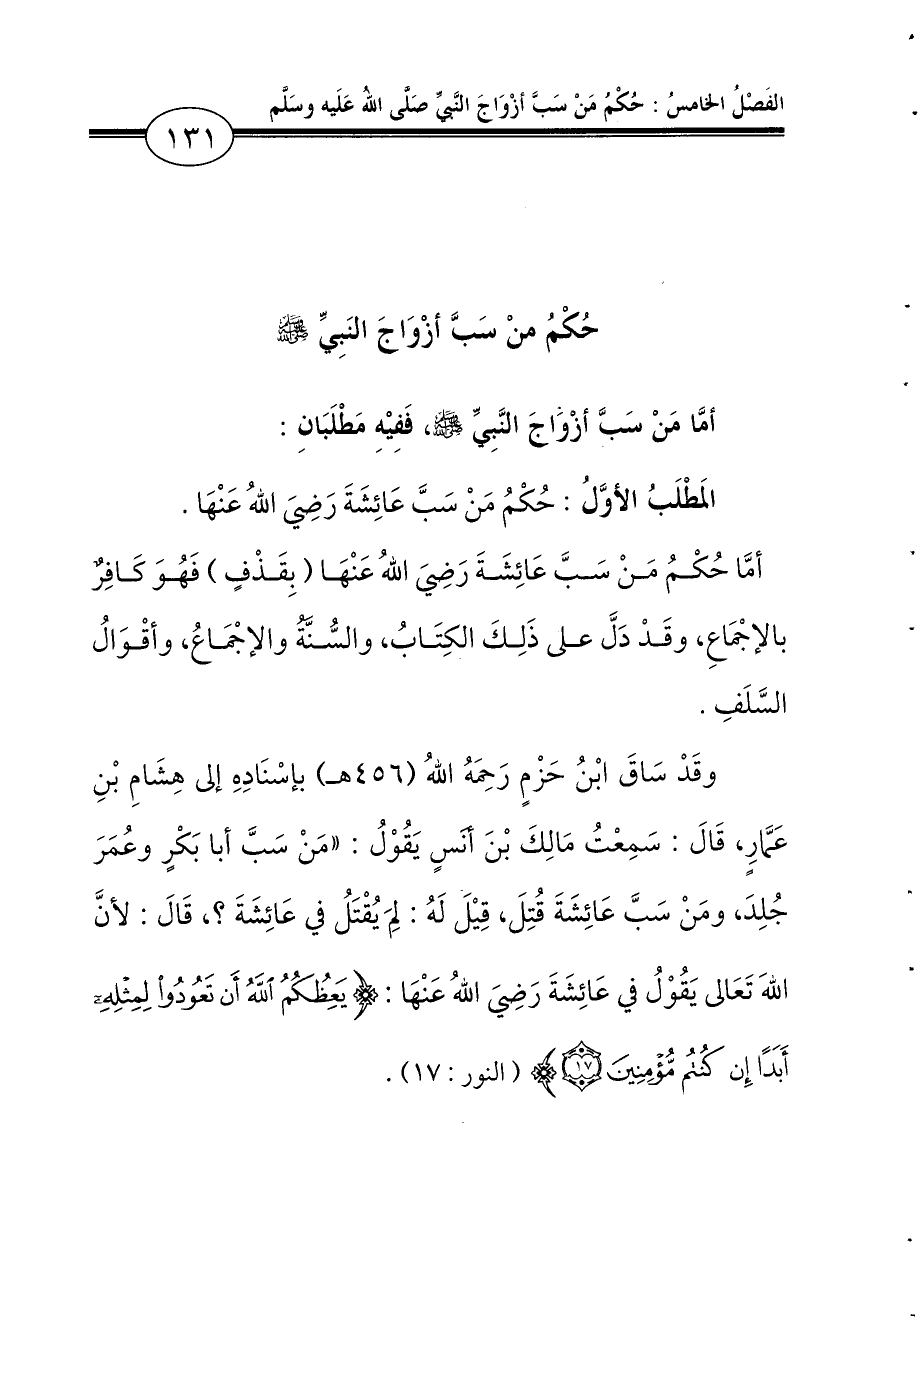 الفَصْلُ الخامسُ : حُكْمُ مَنْ سَبَّ أزْوَاجَ النَّبيِّ صَلَّى اللهُ عَلَيه وسَلَّم
١٣١
حُكْمُ منْ سَبَّ أزْوَاجَ النَبِيِّ ﷺ
أمَّا مَنْ سَبَّ أزْوَاجَ النَّبِيِّ ﷺ، فَفِيْهِ مَطْلَبَانِ :
المَطْلَبُ الأوَّلُ : حُكْمُ مَنْ سَبَّ عَائِشَةَ رَضِيَ اللهُ عَنْهَا .
أمَّا حُكْمُ مَنْ سَبَّ عَائِشَةَ رَضِيَ اللهُ عَنْهَا ( بِقَذْفٍ ) فَهُوَ كَافِرٌ
بالإجْمَاعِ، وقَدْ دَلَّ على ذَلِكَ الكِتَابُ، والسُّنَّةُ والإجْمَاعُ، وأقْوَالُ
السَّلَفِ .
وقَدْ سَاقَ ابْنُ حَزْمٍ رَحِمَهُ اللهُ (٤٥٦هـ) بإسْنَادِهِ إلى هِشَامِ بْنِ
عَمَّارٍ، قَالَ : سَمِعْتُ مَالِكَ بْنَ أنَسٍ يَقُوْلُ : «مَنْ سَبَّ أبا بَكْرٍ وعُمَرَ
جُلِدَ، ومَنْ سَبَّ عَائِشَةَ قُتِلَ، قِيْلَ لَهُ : لِمَ يُقْتَلُ في عَائِشَةَ ؟، قَالَ : لأنَّ
اللهَ تَعَالى يَقُوْلُ في عَائِشَةَ رَضِيَ اللهُ عَنْهَا : ﴿ يَعِظُكُمُ ٱللَّهُ أَن تَعُودُوا۟ لِمِثْلِهِۦٓ
أَبَدًا إِن كُنتُم مُّؤْمِنِينَ ١٧ ﴾ ( النور : ١٧) .